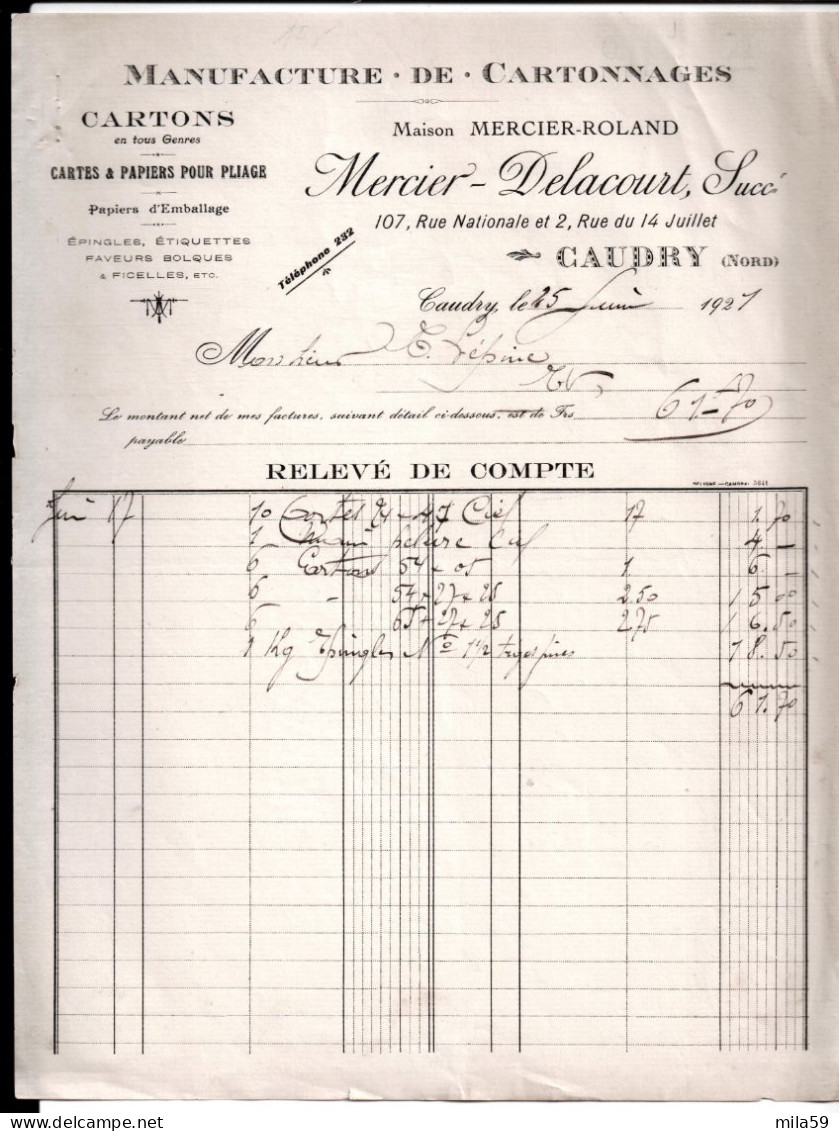 MANUFACTURE · DE · CARTONNAGES
CARTONS
en tous Genres
CARTES & PAPIERS POUR PLIAGE
Papiers d'Emballage
ÉPINGLES, ÉTIQUETTES
FAVEURS BOLQUES
& FICELLES, ETC.
Maison MERCIER-ROLAND
Mercier-Delacourt, Succ
107, Rue Nationale et 2, Rue du 14 Juillet
CAUDRY (NORD)
Téléphone 232
Caudry, le 25 Juin 1927
Monsieur E. Lépine
Le montant net de mes factures, suivant détail ci-dessous, est de Frs 61-70
payable
RELEVÉ DE COMPTE
Juin 17 10 Cartes Ciel 17 1.70
1 pelure Ciel 4 -
6 Cartons 54 1. 6. -
6 - 54 + 27 + 25 2.50 15.00
6 65 + 27 + 25 2.75 16.50
1 Kg Épingles No 1 1/2 18.50
61.70
delcampe.net
mila59